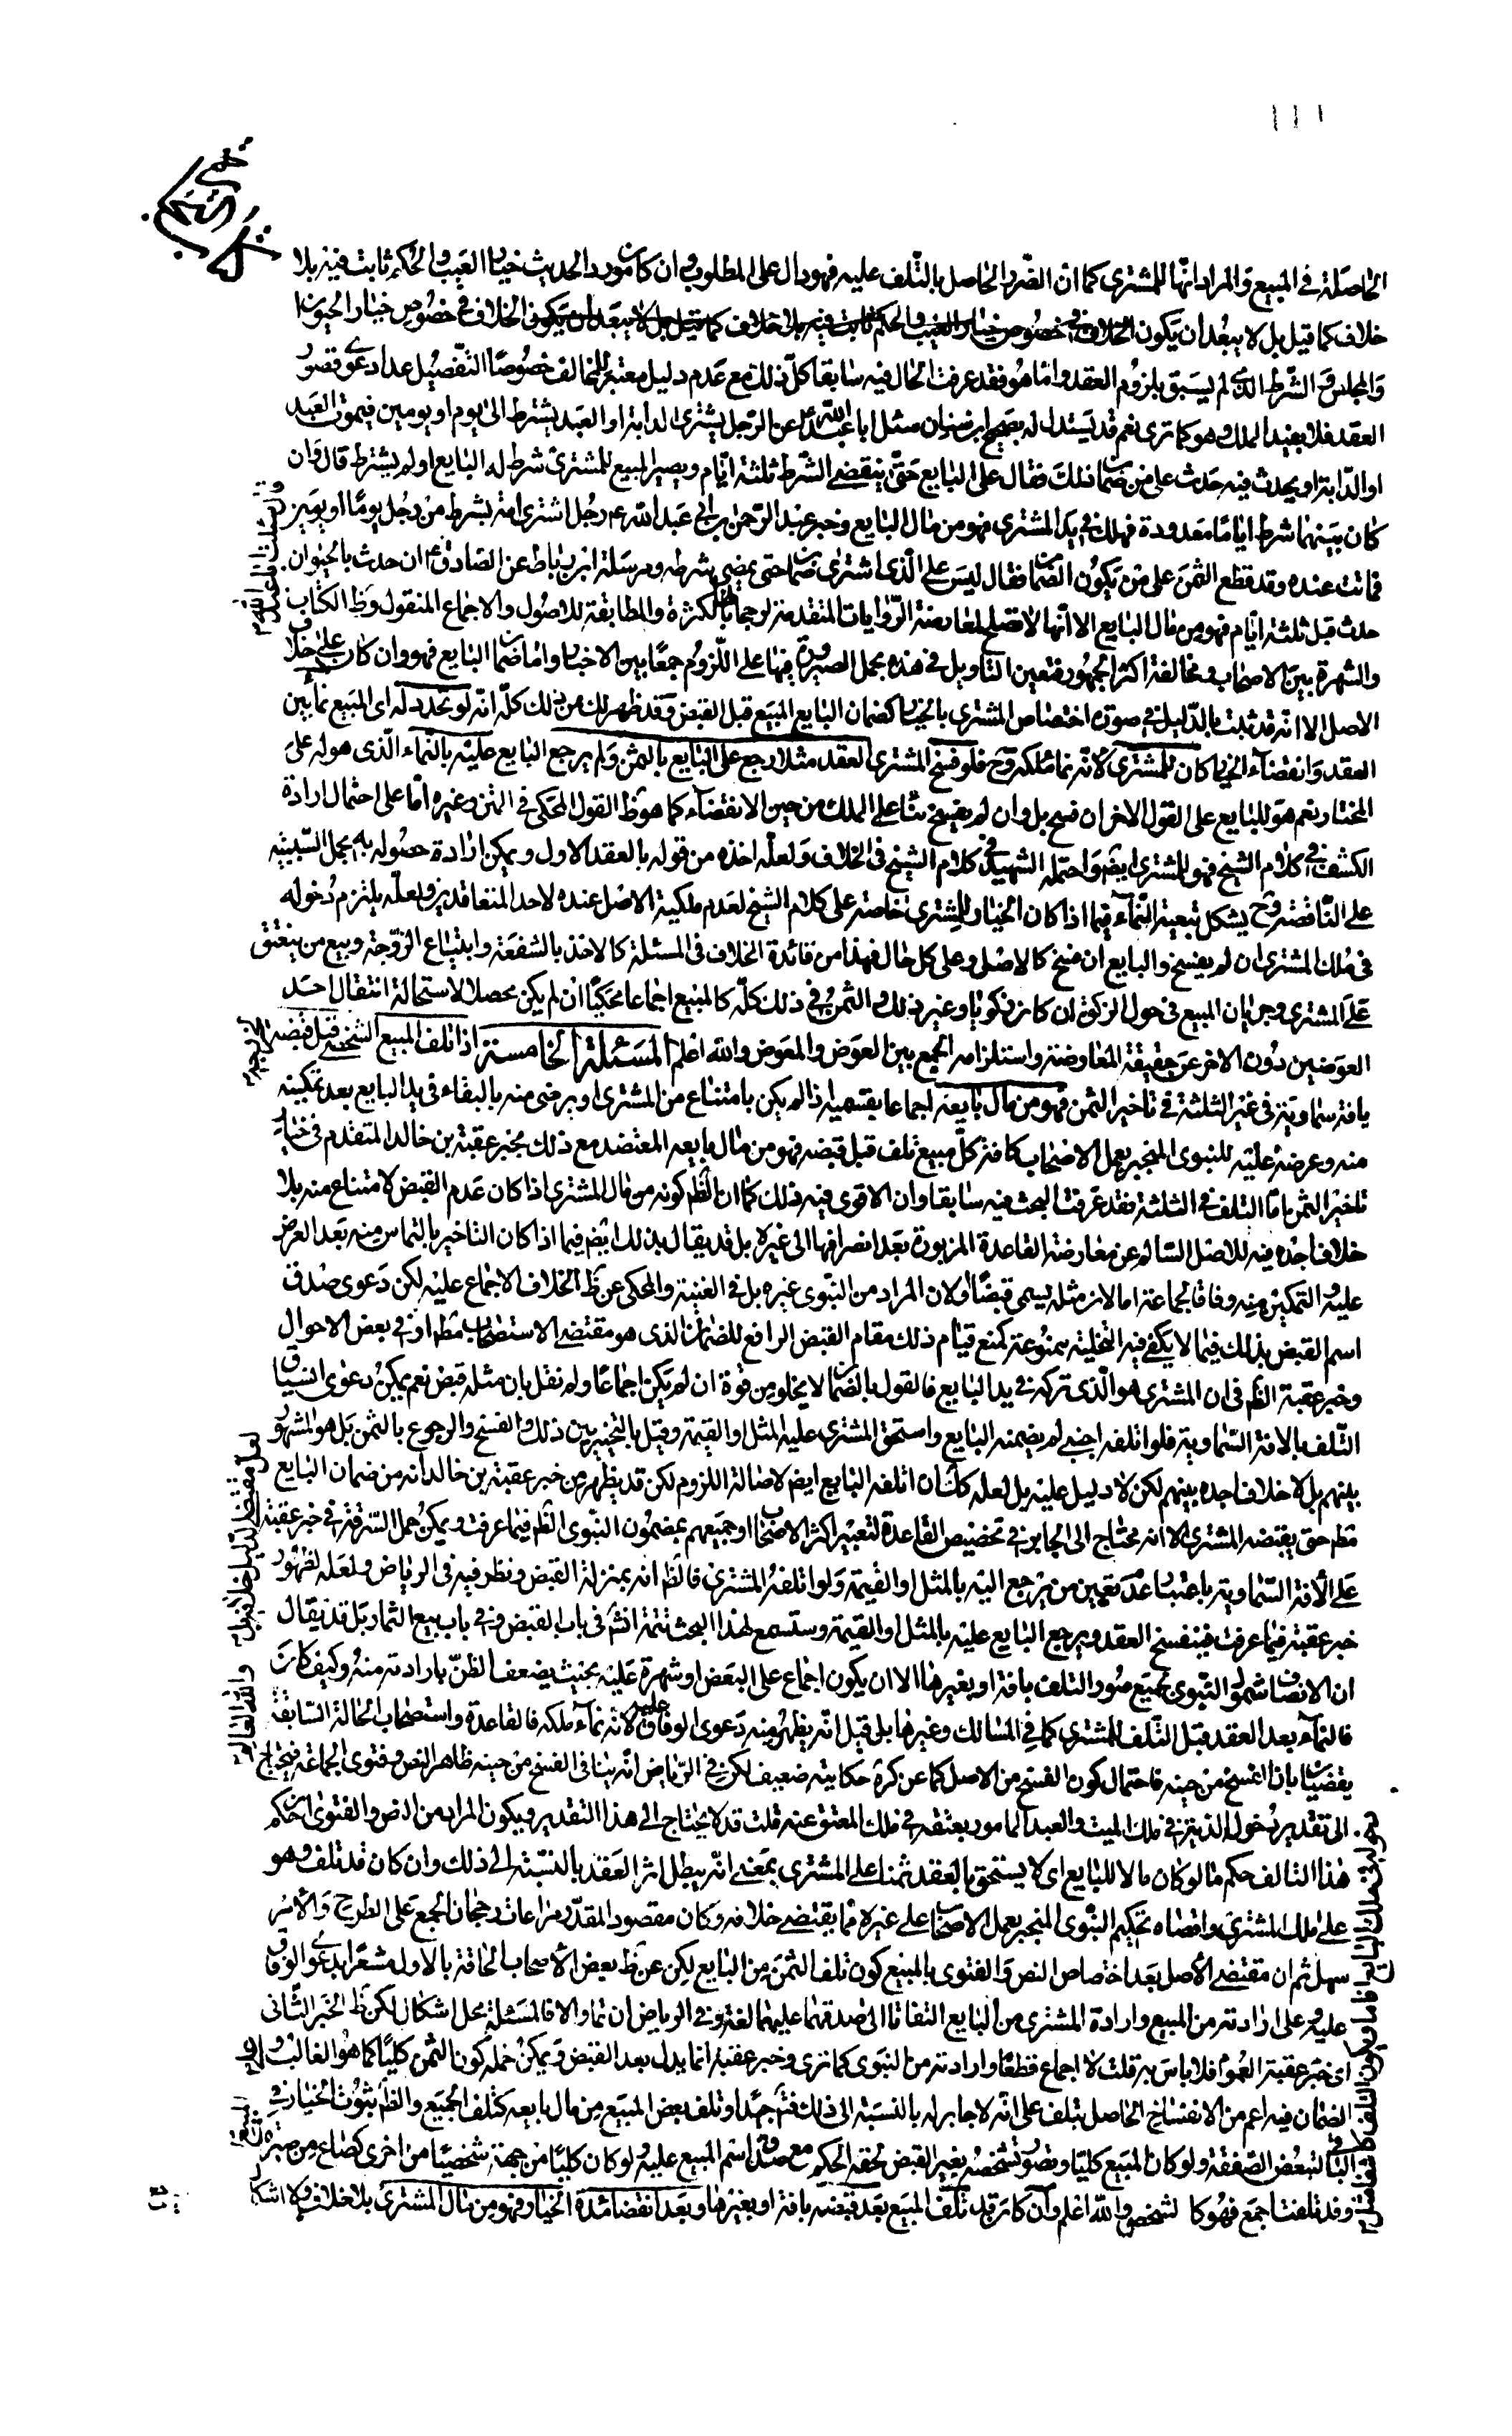 كتاب التجارة
الحاصلة في المبيع والمراد انها للمشترى كما ان الضرر الحاصل بالتلف عليه فهو دال على المطلوب وان كان مورد الحديث خيار العيب والحكم ثابت فيه بلا
خلاف كما قيل بل لا يبعد أن يكون الخلاف في خصوص خيار الحيوان
والمجلس والشرط الذى لم يسبق بلزوم العقد واما هو فقد عرفت الحال فيه سابقا كل ذلك مع عدم دليل معتبر للمخالف خصوصا التفصيل عدا دعوى قصور
العقد فلا يفيد الملك وهو كما ترى نعم قد يستدل له بصحيح ابن سنان سئل ابا عبد الله ع عن الرجل يشترى الدابة او العبد يشترط الى يوم او يومين فيموت العبد
او الدابة او يحدث فيه حدث على من ضمان ذلك فقال على البايع حتى ينقضي الشرط ثلثة ايام ويصير المبيع للمشترى شرط له البايع او لم يشترط قال وان
كان بينهما شرط اياما معدودة فهلك في يد المشترى فهو من مال البايع وخبر عبد الرحمن بن ابى عبد الله ع رجل اشترى امة بشرط من رجل يوما او يومين
فماتت عنده وقد قطع الثمن على من يكون الضمان فقال ليس على الذى اشترى ضمان حتى يمضى بشرطه ومرسلة ابن رباط عن الصادق ع ان حدث بالحيوان
حدث قبل ثلثة ايام فهو من مال البايع الا انها لا تصلح لمعارضة الروايات المتقدمة لرجحانها بالكثرة والمطابقة للاصول والاجماع المنقول وظ الكتاب
والشهرة بين الاصحاب ومخالفة اكثر الجمهور فتعين التاويل في هذه بحمل الصيرورة فيها على اللزوم جمعا بين الاخبار واما ضمان البايع فهو وان كان على خلاف
الاصل الا انه قد ثبت بالدليل في صورة اختصاص المشترى بالخيار كضمان البايع المبيع قبل القبض وقد ظهر لك من ذلك كله انه لو تجدد له اى المبيع نماء بين
العقد وانقضاء الخيار كان للمشترى لانه نماء ملكه وح فلو فسخ المشترى العقد مثلا رجع على البايع بالثمن ولم يرجع البايع عليه بالنماء الذى هو له على
المختار نعم هو للبايع على القول الاخر ان فسخ بل وان لم يفسخ بناء على الملك من حين الانقضاء كما هو ظ القول المحكى في المتن وغيره اما على احتمال ارادة
الكشف في كلام الشيخ فهو للمشترى ايضا واحتمله الشهيد في كلام الشيخ في الخلاف ولعله اخذه من قوله بالعقد الاول ويمكن ارادة حصوله به بحمل السببية
على الناقصة وح يشكل تبعية النماء فيما اذا كان الخيار للمشترى خاصة على كلام الشيخ لعدم ملكية الاصل عنده لاحد المتعاقدين ولعله يلتزم دخوله
في ملك المشترى ان لم يفسخ والبايع ان فسخ كالاصل وعلى كل حال فهذا من فائدة الخلاف في المسئلة كالاخذ بالشفعة وابتياع الزوجة وبيع من ينعتق
على المشترى وجريان المبيع في حول الزكوة ان كان زكويا وغير ذلك والثمن في ذلك كله كالمبيع اجماعا محكيا ان لم يكن محصلا لاستحالة انتقال احد
العوضين دون الاخر عن حقيقة المعاوضة واستلزامه الجمع بين العوض والمعوض والله اعلم المسئلة الخامسة اذا تلف المبيع الشخصي قبل قبضه
بافة سماوية في غير الثلثة في تاخير الثمن فهو من مال بايعه اجماعا بقسميه اذا لم يكن بامتناع من المشترى او برضى منه بالبقاء في يد البايع بعد تمكينه
منه وعرضه عليه للنبوى المنجبر بعمل الاصحاب كافة كل مبيع تلف قبل قبضه فهو من مال بايعه المعتضد مع ذلك بخبر عقبة بن خالد المتقدم في خيار
تاخير الثمن اما التلف في الثلثة فقد عرفت البحث فيه سابقا وان الاقوى فيه ذلك كما ان الظ كونه من مال المشترى اذا كان عدم القبض لامتناع منه بلا
خلاف اجده فيه للاصل السالم عن معارضة القاعدة المزبورة بعد انصرافها الى غيره بل قد يقال بذلك ايضا فيما اذا كان التاخير بالتماس منه بعد العرض
عليه والتمكين منه وفاقا لجماعة اما لان مثله يسمى قبضا او لان المراد من النبوى غيره بل في الغنية والمحكى عن ظ الخلاف الاجماع عليه لكن دعوى صدق
اسم القبض بذلك فيما لا يكفى فيه التخلية ممنوعة كمنع قيام ذلك مقام القبض الرافع للضمان الذى هو مقتضى الاستصحاب مطلقا او في بعض الاحوال
وخبر عقبة الظ في ان المشترى هو الذى تركه في يد البايع فالقول بالضمان لا يخلو من قوة ان لم يكن اجماعا ولم نقل بان مثله قبض نعم يمكن دعوى انسياق
التلف بالافة السماوية فلو اتلفه اجنبى لم يضمنه البايع واستحق المشترى عليه المثل او القيمة وقيل بالتخيير بين ذلك والفسخ والرجوع بالثمن بل هو المشهور
بينهم بل لا خلاف اجده بينهم لكن لا دليل عليه بل لعله كك ان اتلفه البايع ايضا لاصالة اللزوم لكن قد يظهر من خبر عقبة بن خالد انه من ضمان البايع
مطلقا حتى يقبضه المشترى الا انه محتاج الى الجابر في تخصيص القاعدة لتعبير اكثر الاصحاب او جميعهم بمضمون النبوى الظ فيما عرفت ويمكن حمل السرقة في خبر عقبة
على الافة السماوية باعتبار عدم تعيين من يرجع اليه بالمثل او القيمة ولو اتلفه المشترى فالظ انه بمنزلة القبض ونظر فيه في الرياض ولعله لظهور
خبر عقبة فيما عرفت فينفسخ العقد ويرجع البايع عليه بالمثل او القيمة وستسمع لهذا البحث تتمة انش في باب القبض وفي باب بيع الثمار بل قد يقال
ان الانصاف شمول النبوى لجميع صور التلف بافة او بغيرها الا ان يكون اجماع على البعض او شهرة عليه بحيث يضعف الظن بارادته منه وكيف كان
فالنماء بعد العقد قبل التلف للمشترى كما في المسالك وغيرها بل قيل انه يظهر منه دعوى الوفاق عليه لانه نماء ملكه فالقاعدة واستصحاب الحالة السابقة
يقضيان بان الفسخ من حينه فاحتمال كون الفسخ من الاصل كما عن كرة حكايته ضعيف لكن في الرياض انه ينافى الفسخ من حينه ظاهر النص وفتوى الجماعة فيحتاج
الى تقدير دخول الدية في ملك الميت والعبد المامور بعتقه في ملك المعتق عنه قلت قد لا يحتاج الى هذا التقدير ويكون المراد من النص والفتوى ان حكم
هذا التالف حكم ما لو كان مالا للبايع اى لا يستحق بالعقد ثمنا على المشترى بمعنى انه يبطل اثر العقد بالنسبة الى ذلك وان كان قد تلف وهو
على ملك المشترى واقصاه تحكيم النبوى المنجبر بعمل الاصحاب على غيره مما يقتضى خلافه وكان مقصود المقدر مراعات رجحان الجمع على الطرح والامر
سهل ثم ان مقتضى الاصل بعد اختصاص النص والفتوى بالمبيع كون تلف الثمن من البايع لكن عن ظ بعض الاصحاب الحاقه بالاول مشعرا بدعوى الوفاق
عليه وعلى ارادته من المبيع وارادة المشترى من البايع التفاتا الى صدقهما عليهما لغة وفي الرياض ان تم والا فالمسئلة محل اشكال لكن ظ الخبر الثانى
اى خبر عقبة العموم فلا باس به قلت لا اجماع قطعا وارادته من النبوى كما ترى وخبر عقبة انما يدل بعد القبض ويمكن حمله كون الثمن كليا كما هو الغالب
الضمان فيه اعم من الانفساخ الحاصل بتلف على انه لا جابر له بالنسبة الى ذلك فتم جيدا وتلف بعض المبيع من مال بايعه كتلف الجميع والظ ثبوت الخيار في
الباقى لتبعض الصفقة ولو كان المبيع كليا وتصور تشخصه بغير القبض لحقه الحكم مع صدق اسم المبيع عليه ولو كان كليا من جهة شخصيا من اخرى كصاع من صبرة
وقد تلفت اجمع فهو كا لشخصى والله اعلم وان كان قد تلف المبيع بعد قبضه بافة او بغيرها وبعد انقضاء مدة الخيار فهو من مال المشترى بلا خلاف ولا اشكال